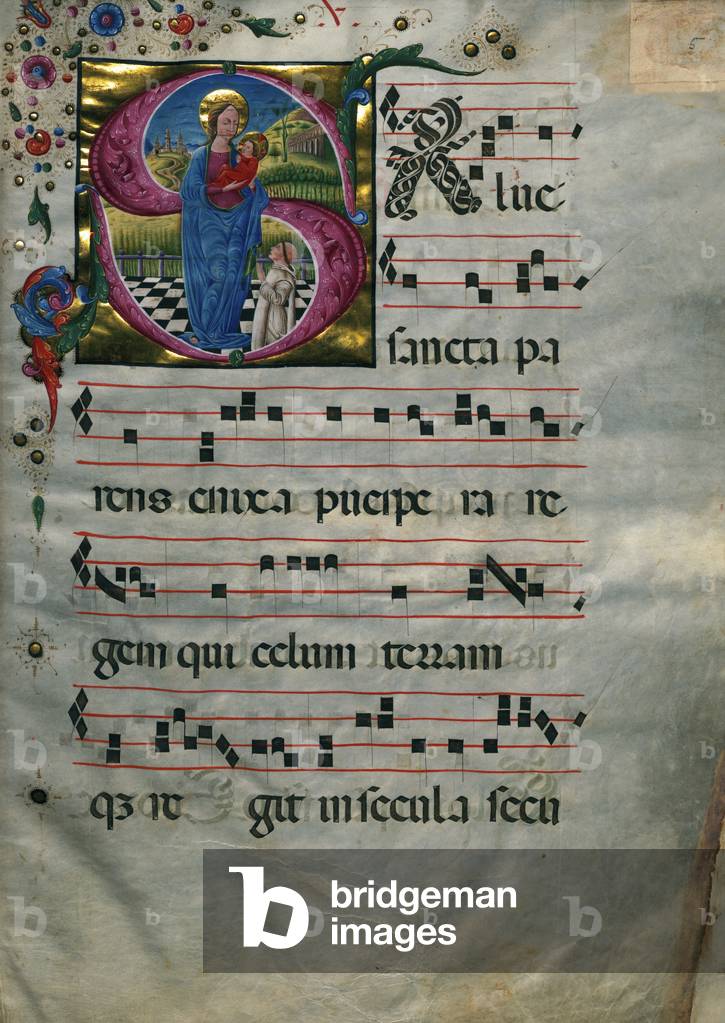 5
SA lue
sancta pa
rens enixa puerpe ra re
gem qui celum terram
qꝫ re git in secula secu
b bridgeman
images